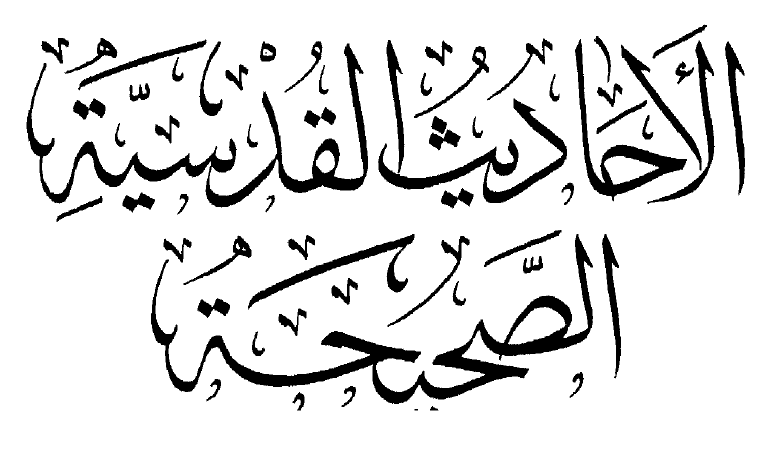 الأَحَادِيثُ القُدْسِيَّةُ
الصَّحِيحَةُ